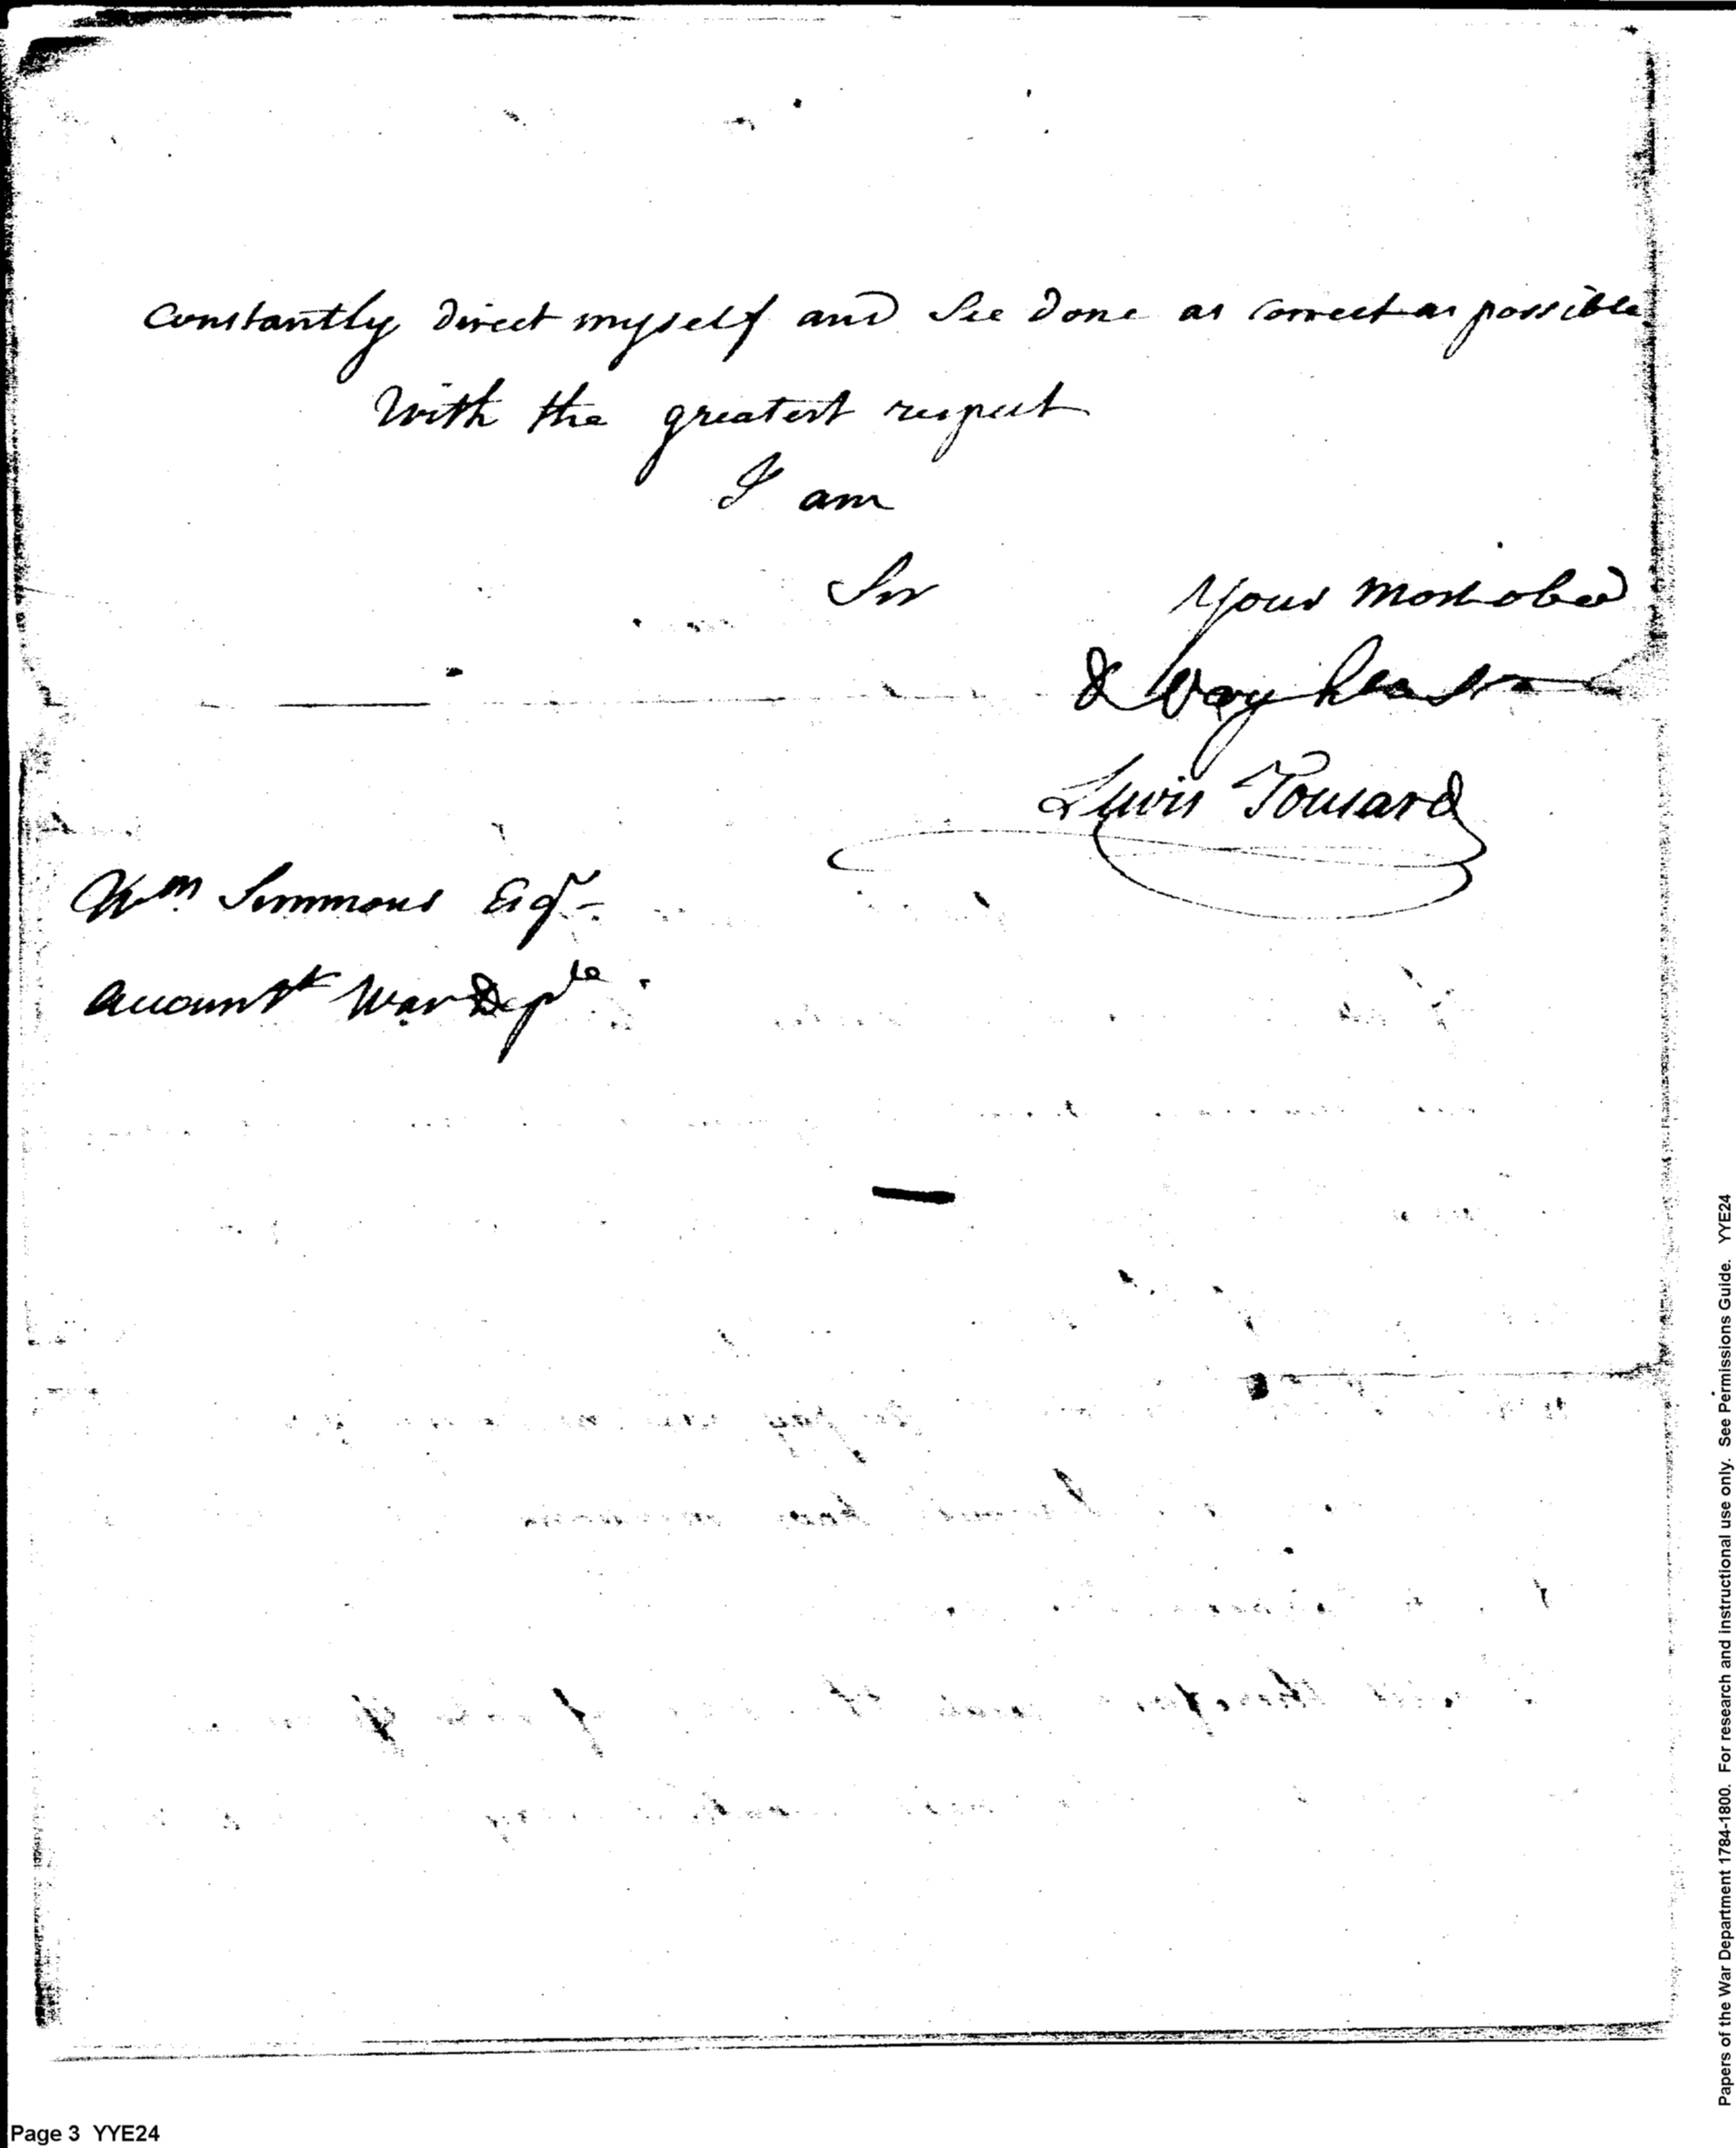 constantly direct myself and See done as correct as possible
With the greatest respect
I am
Sir Your most obed
& Very
Lewis Tousard
Wm Simmons Esqr
Accountt War Depte.
Page 3 YYE24
Papers of the War Department 1784-1800. For research and instructional use only. See Permissions Guide. YYE24